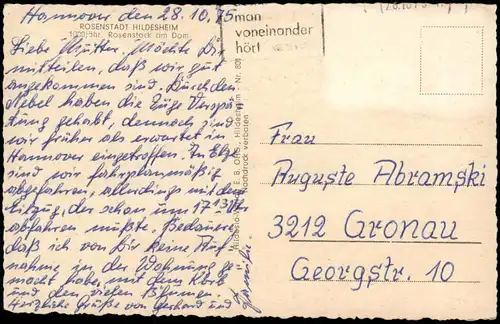 Hannover den 28.10.75
ROSENSTADT HILDESHEIM
1000jähr. Rosenstock am Dom
Liebe Mutter. Möchte Dir
mitteilen, daß wir gut
angekommen sind. Durch den
Nebel haben die Züge Verspä-
tung gehabt, dennoch sind
wir früher als erwartet in
Hannover eingetroffen. In Elze
sind wir fahrplanmäßig
abgefahren, allerdings mit dem
Eilzug, der schon um 17 13 Uhr
abfahren müßte. Bedauere
daß ich von Dir keine Auf-
nahme in der Wohnung ge-
macht habe, mit dem Korb
und den vielen Blumen.
Herzliche Grüße von Gerhard und
Nachdruck verboten
man
voneinander
hört
Frau
Auguste Abramski
3212 Gronau
Georgstr. 10